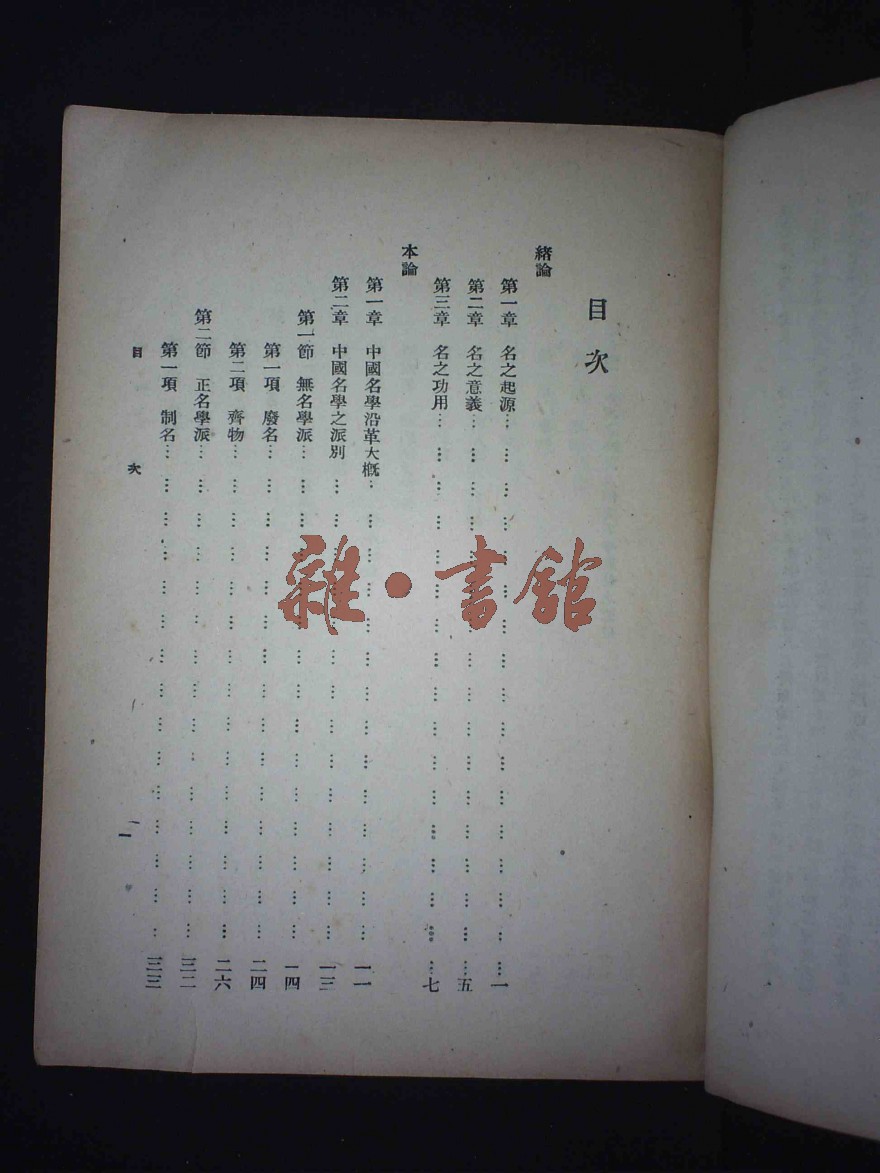 目次
緒論
第一章 名之起源……一
第二章 名之意義……五
第三章 名之功用……七
本論
第一章 中國名學沿革大概……一一
第二章 中國名學之派別……一三
第一節 無名學派……一四
第一項 廢名……二四
第二項 齊物……二六
第二節 正名學派……三二
第一項 制名……三三
目次 一
雜·書館